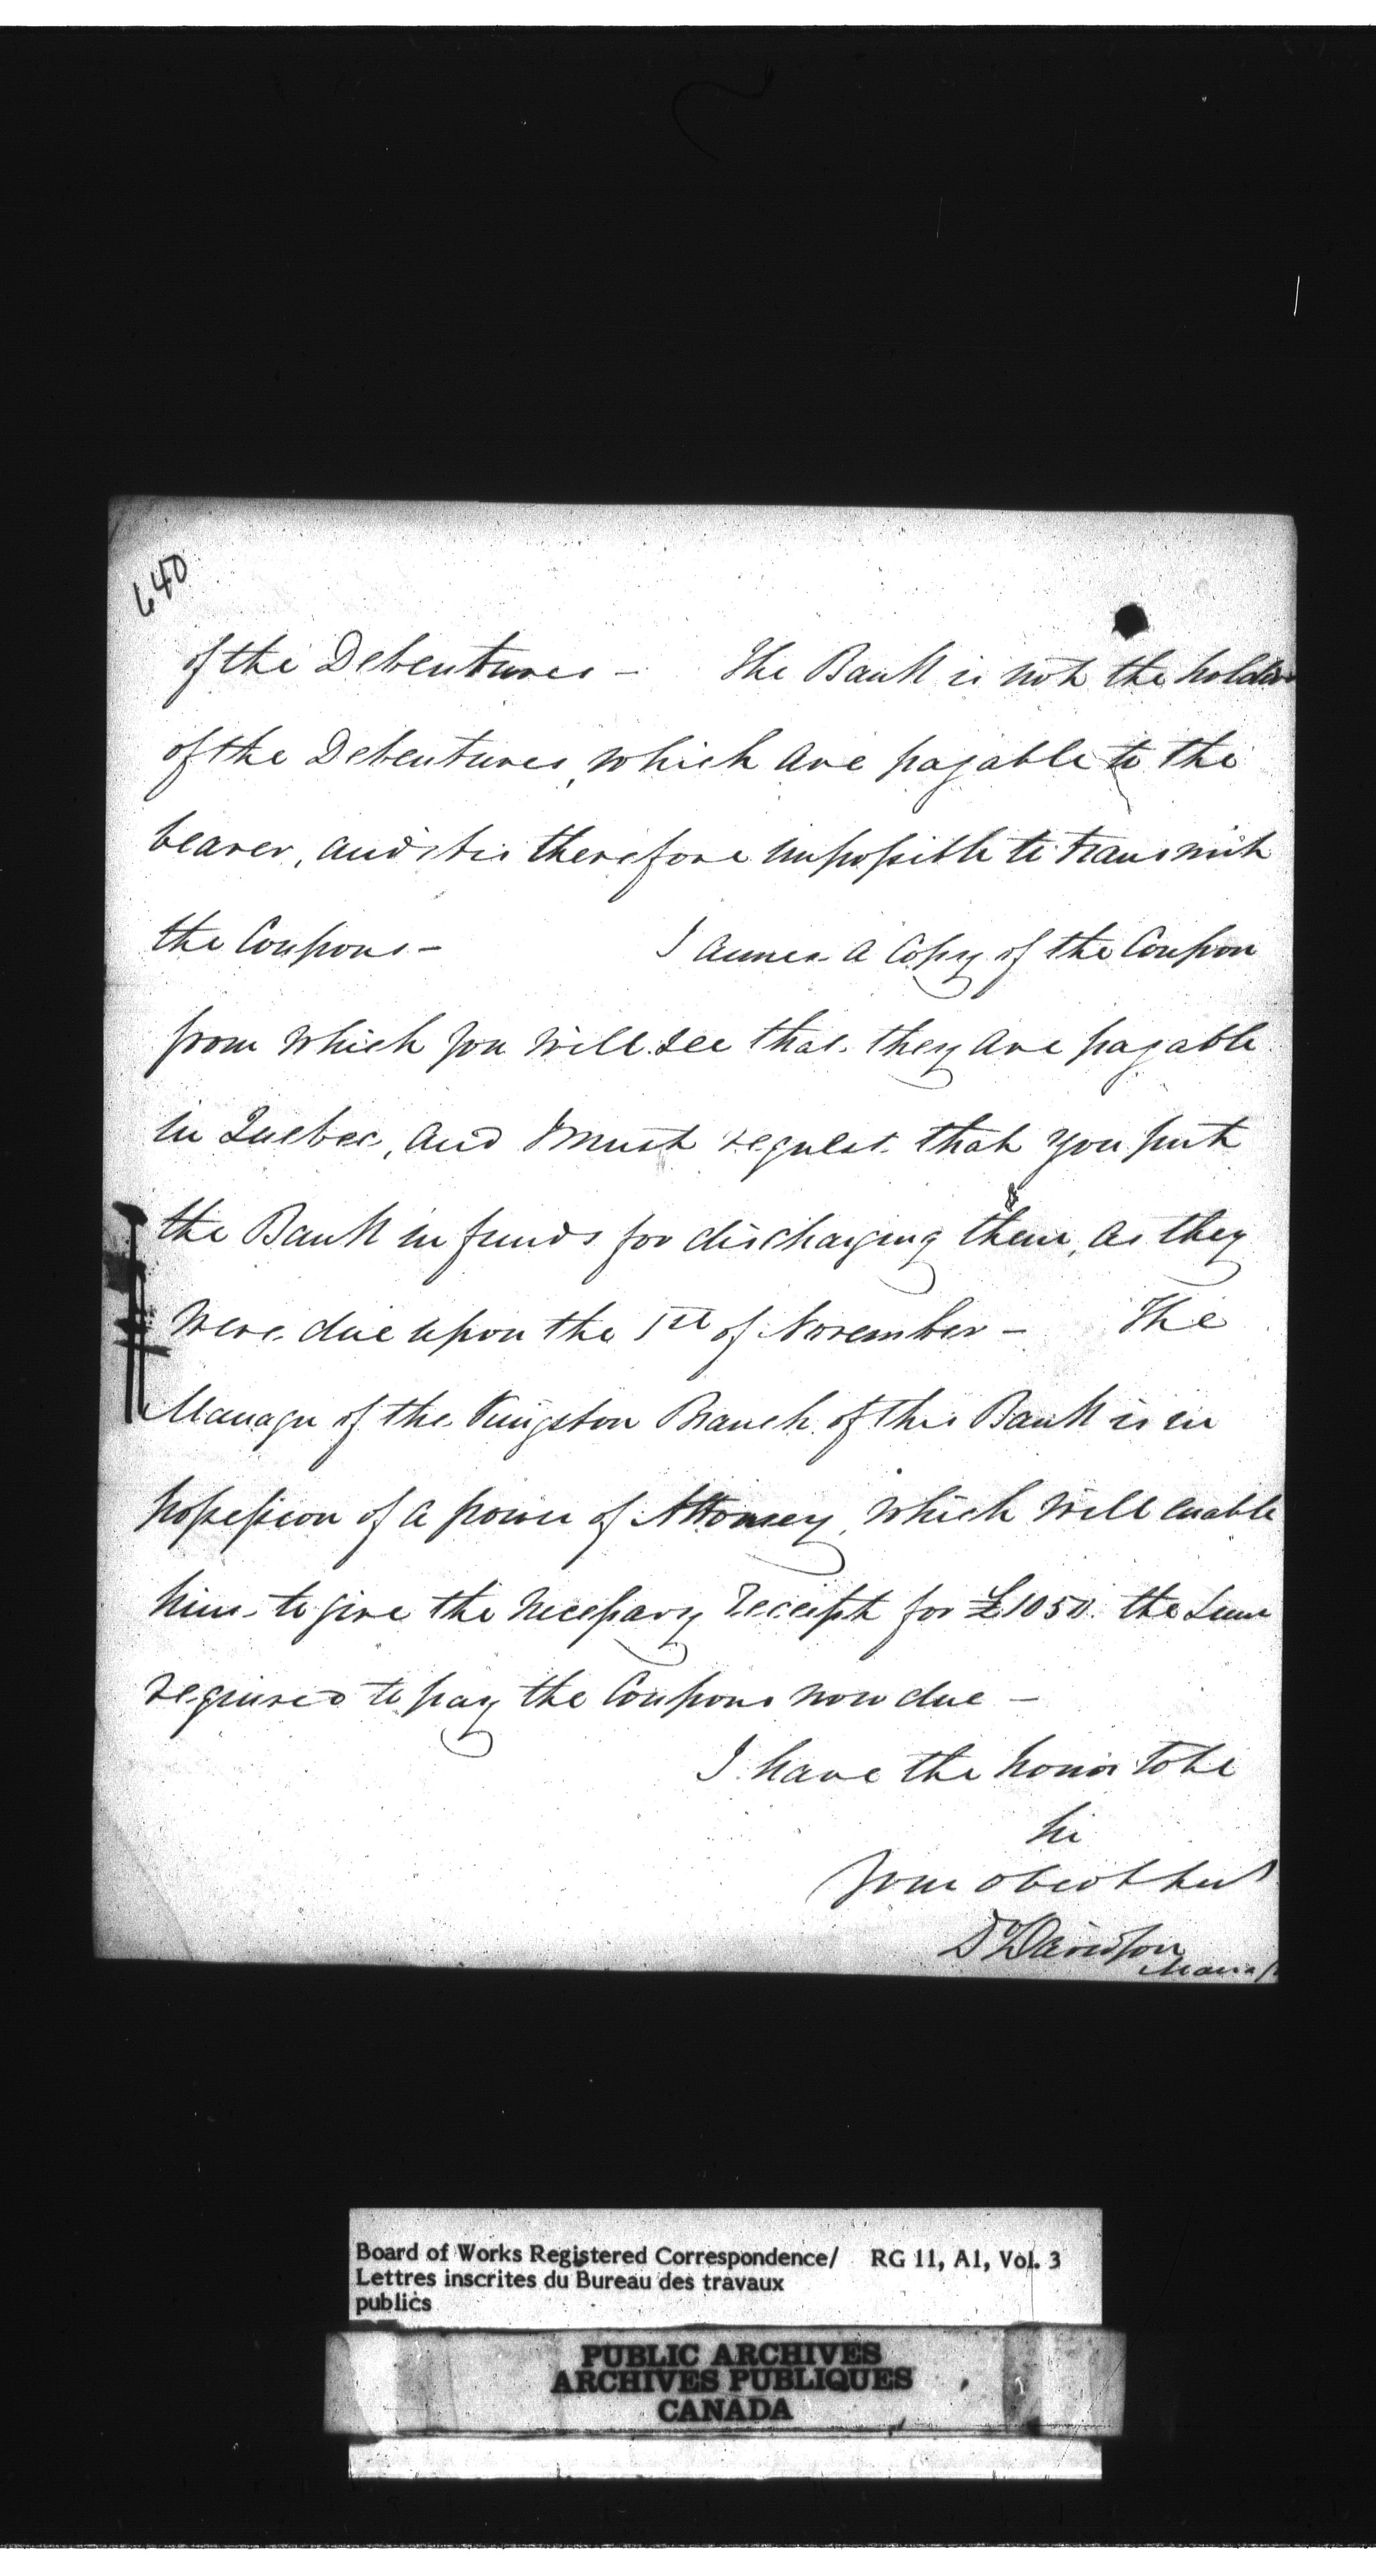 640
of the Debentures – The Bank is not the holder
of the Debentures, which are payable to the
bearer, and it is therefore impossible to transmit
the Coupons – I annex a Copy of the Coupon
from which you will see that they are payable
in Quebec, and I must request that you put
the Bank in funds for discharging them, as they
were due upon the 1st of November – The
Manager of the Kingston Branch of this Bank is in
possession of a power of Attorney, which will enable
him to give the necessary receipt for £1050. the sum
required to pay the Coupons now due –
I have the honor to be
Sir
Your obedt Servt
D Davidson
Manag
Board of Works Registered Correspondence/ RG 11, A1, Vol. 3
Lettres inscrites du Bureau des travaux
publics
PUBLIC ARCHIVES
ARCHIVES PUBLIQUES
CANADA